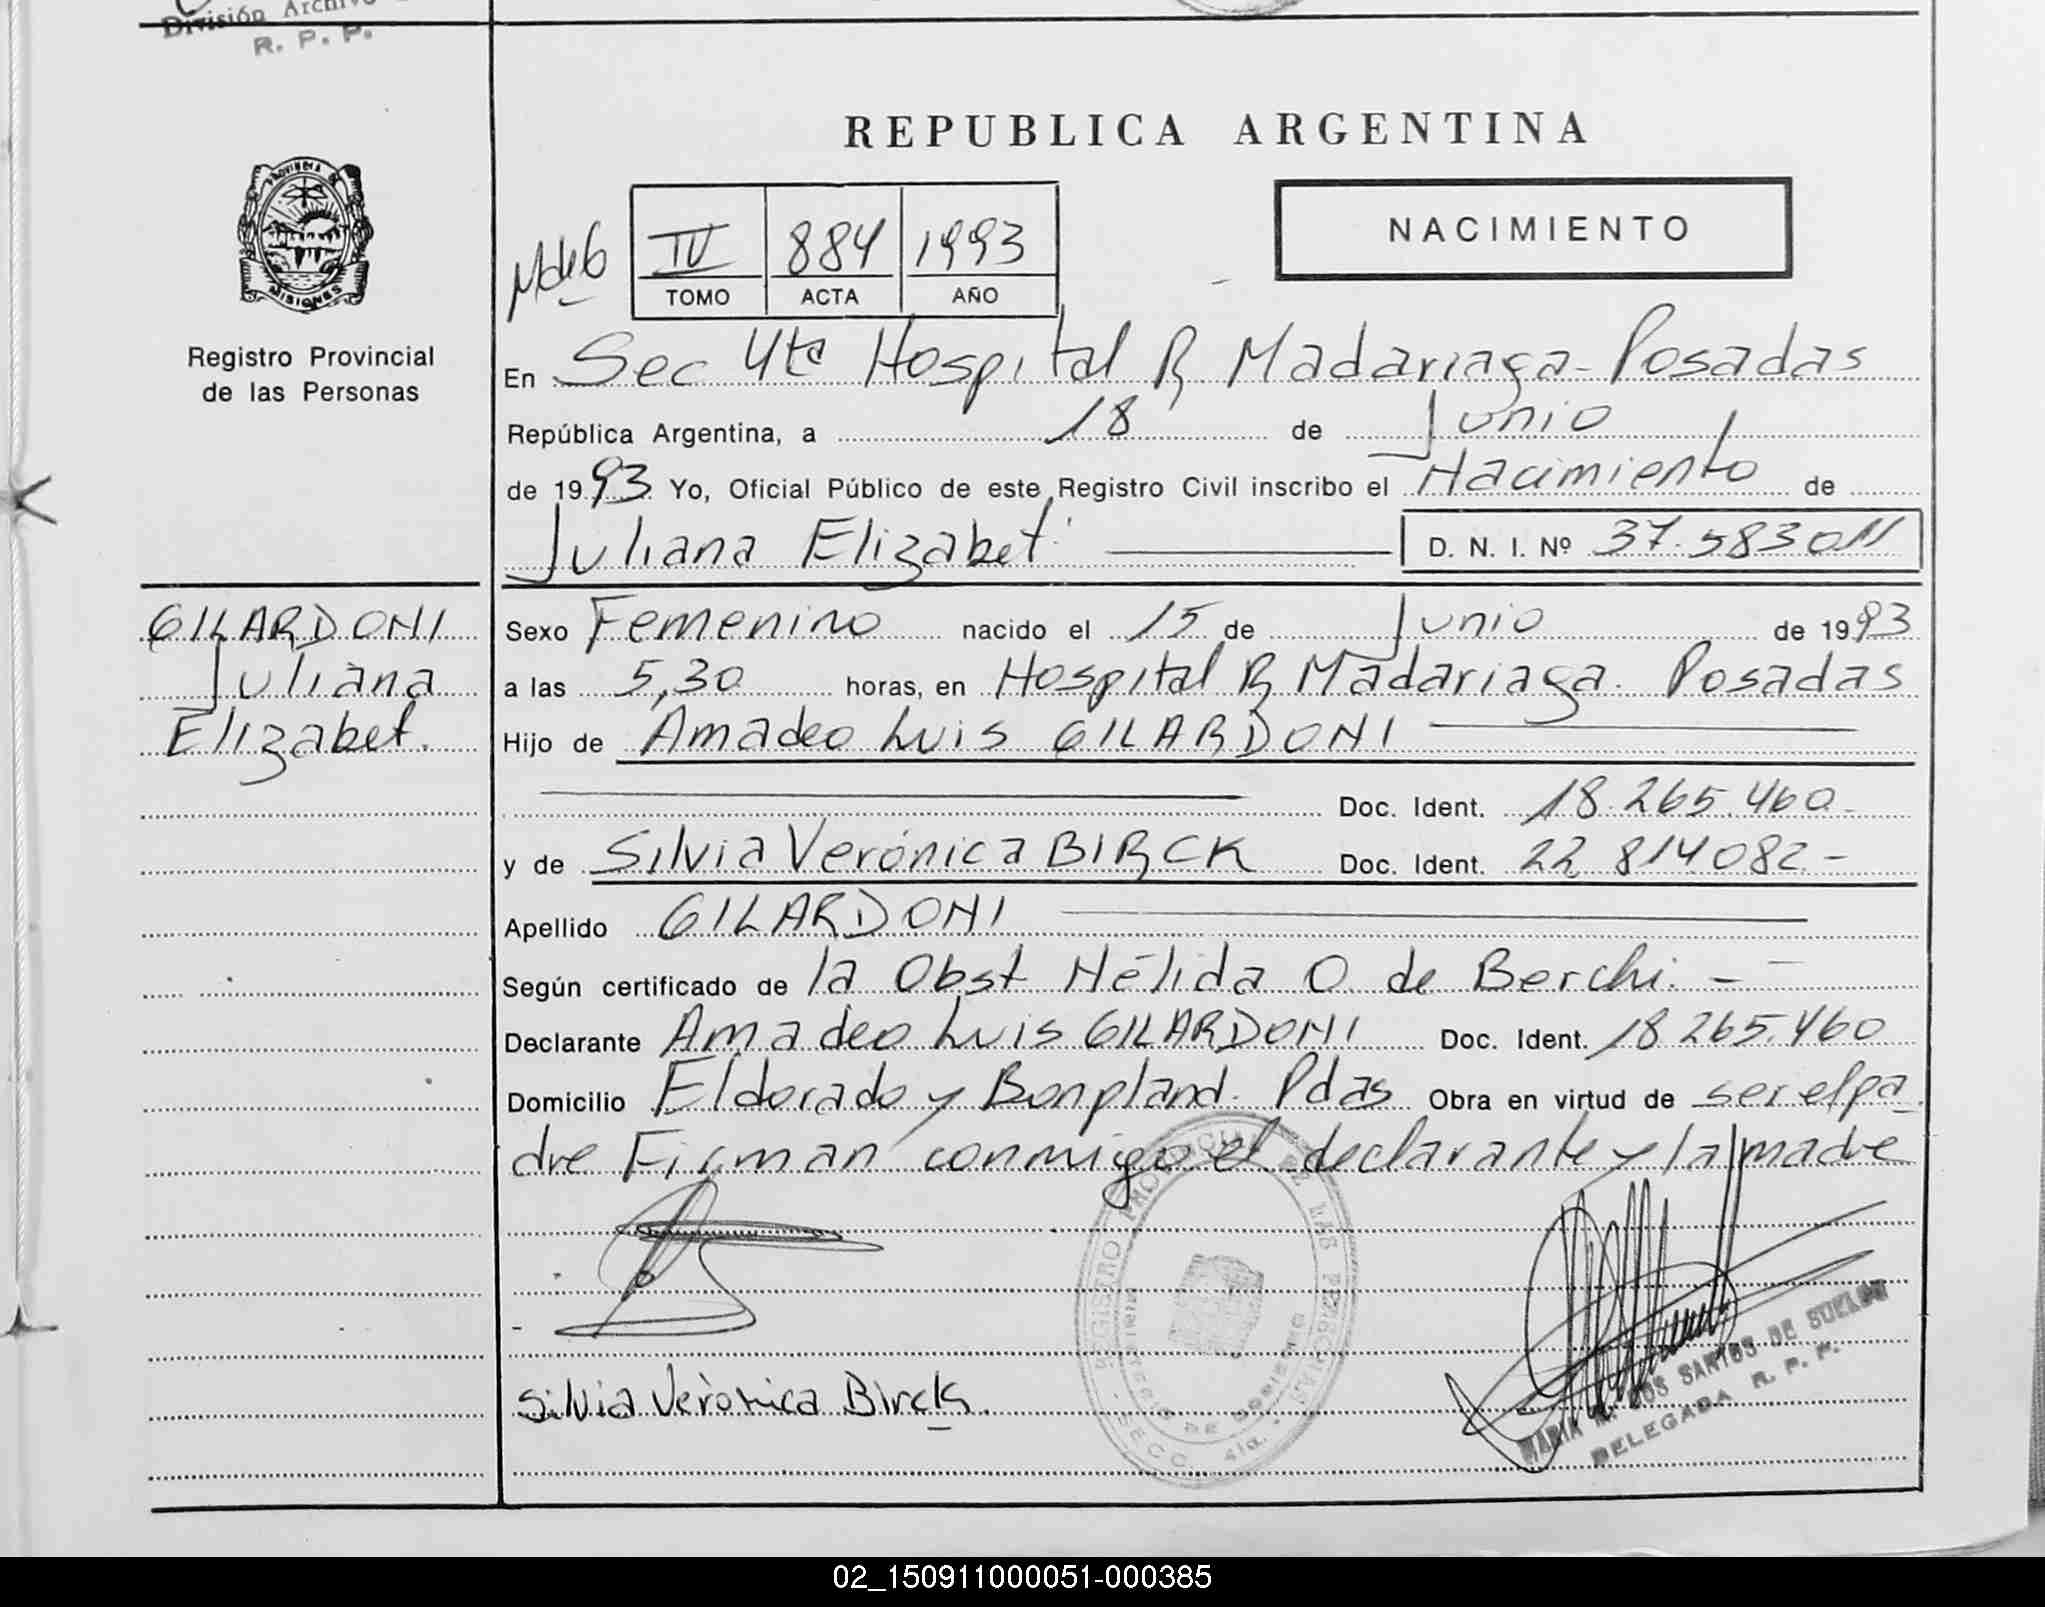 División Archivo
R. P. P.
REPUBLICA ARGENTINA
PROVINCIA DE
MISIONES
Registro Provincial
de las Personas
IV 884 1993
TOMO ACTA AÑO
NACIMIENTO
En Sec 4ta Hospital R Madariaga - Posadas
República Argentina, a 18 de Junio
de 1993 Yo, Oficial Público de este Registro Civil inscribo el Nacimiento de
Juliana Elizabet D. N. I. Nº 37.583011
GILARDONI
Juliana
Elizabet.
Sexo Femenino nacido el 15 de Junio de 1993
a las 5,30 horas, en Hospital R Madariaga. Posadas
Hijo de Amadeo Luis GILARDONI
Doc. Ident. 18.265.460-
y de Silvia Verónica BIRCK Doc. Ident. 22 814082.-
Apellido GILARDONI
Según certificado de la Obst Nélida O. de Berchi. -
Declarante Amadeo Luis GILARDONI Doc. Ident. 18 265.460
Domicilio Eldorado y Bonpland. Pdas Obra en virtud de ser el pa
dre Firman conmigo el declarante y la madre
REGISTRO PROVINCIAL DE LAS PERSONAS
MINISTERIO DE GOBIERNO
SECC. 4ta.
Silvia Verónica Birck.
MARIA DOS SANTOS DE
DELEGADA R. P. P.
02_150911000051-000385